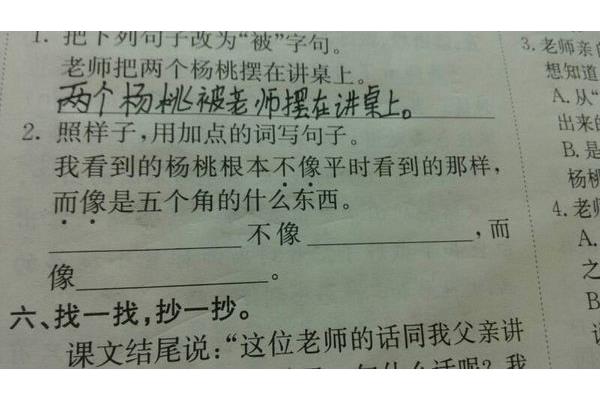 1. 把下列句子改为“被”字句。
老师把两个杨桃摆在讲桌上。
两个杨桃被老师摆在讲桌上。
2. 照样子，用加点的词写句子。
我看到的杨桃根本不像平时看到的那样，
而像是五个角的什么东西。
不像 ，而
像 。
六、找一找，抄一抄。
课文结尾说：“这位老师的话同我父亲讲
3. 老师亲
想知道
A. 从“
出来的
B. 是
杨桃
4. 老师
A.
之
B